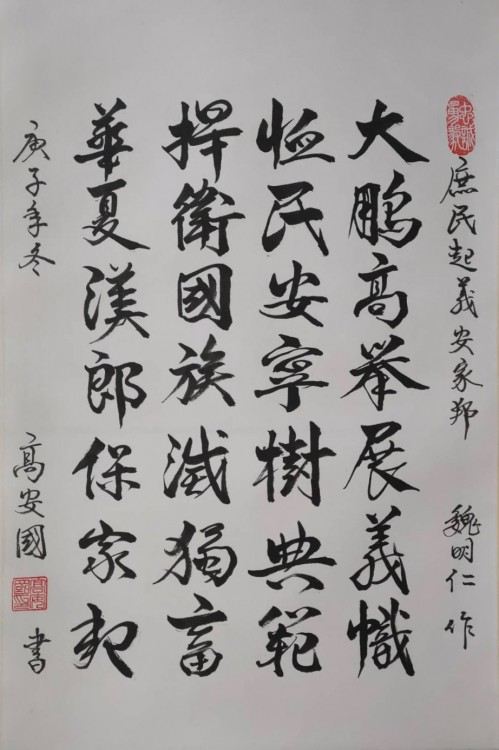 庶民起義安家邦 魏明仁 作
大鵬高举展義幟
恤民安寧樹典範
捍衛國族滅獨畜
華夏漢郎保家
庚子年冬 高安國 書